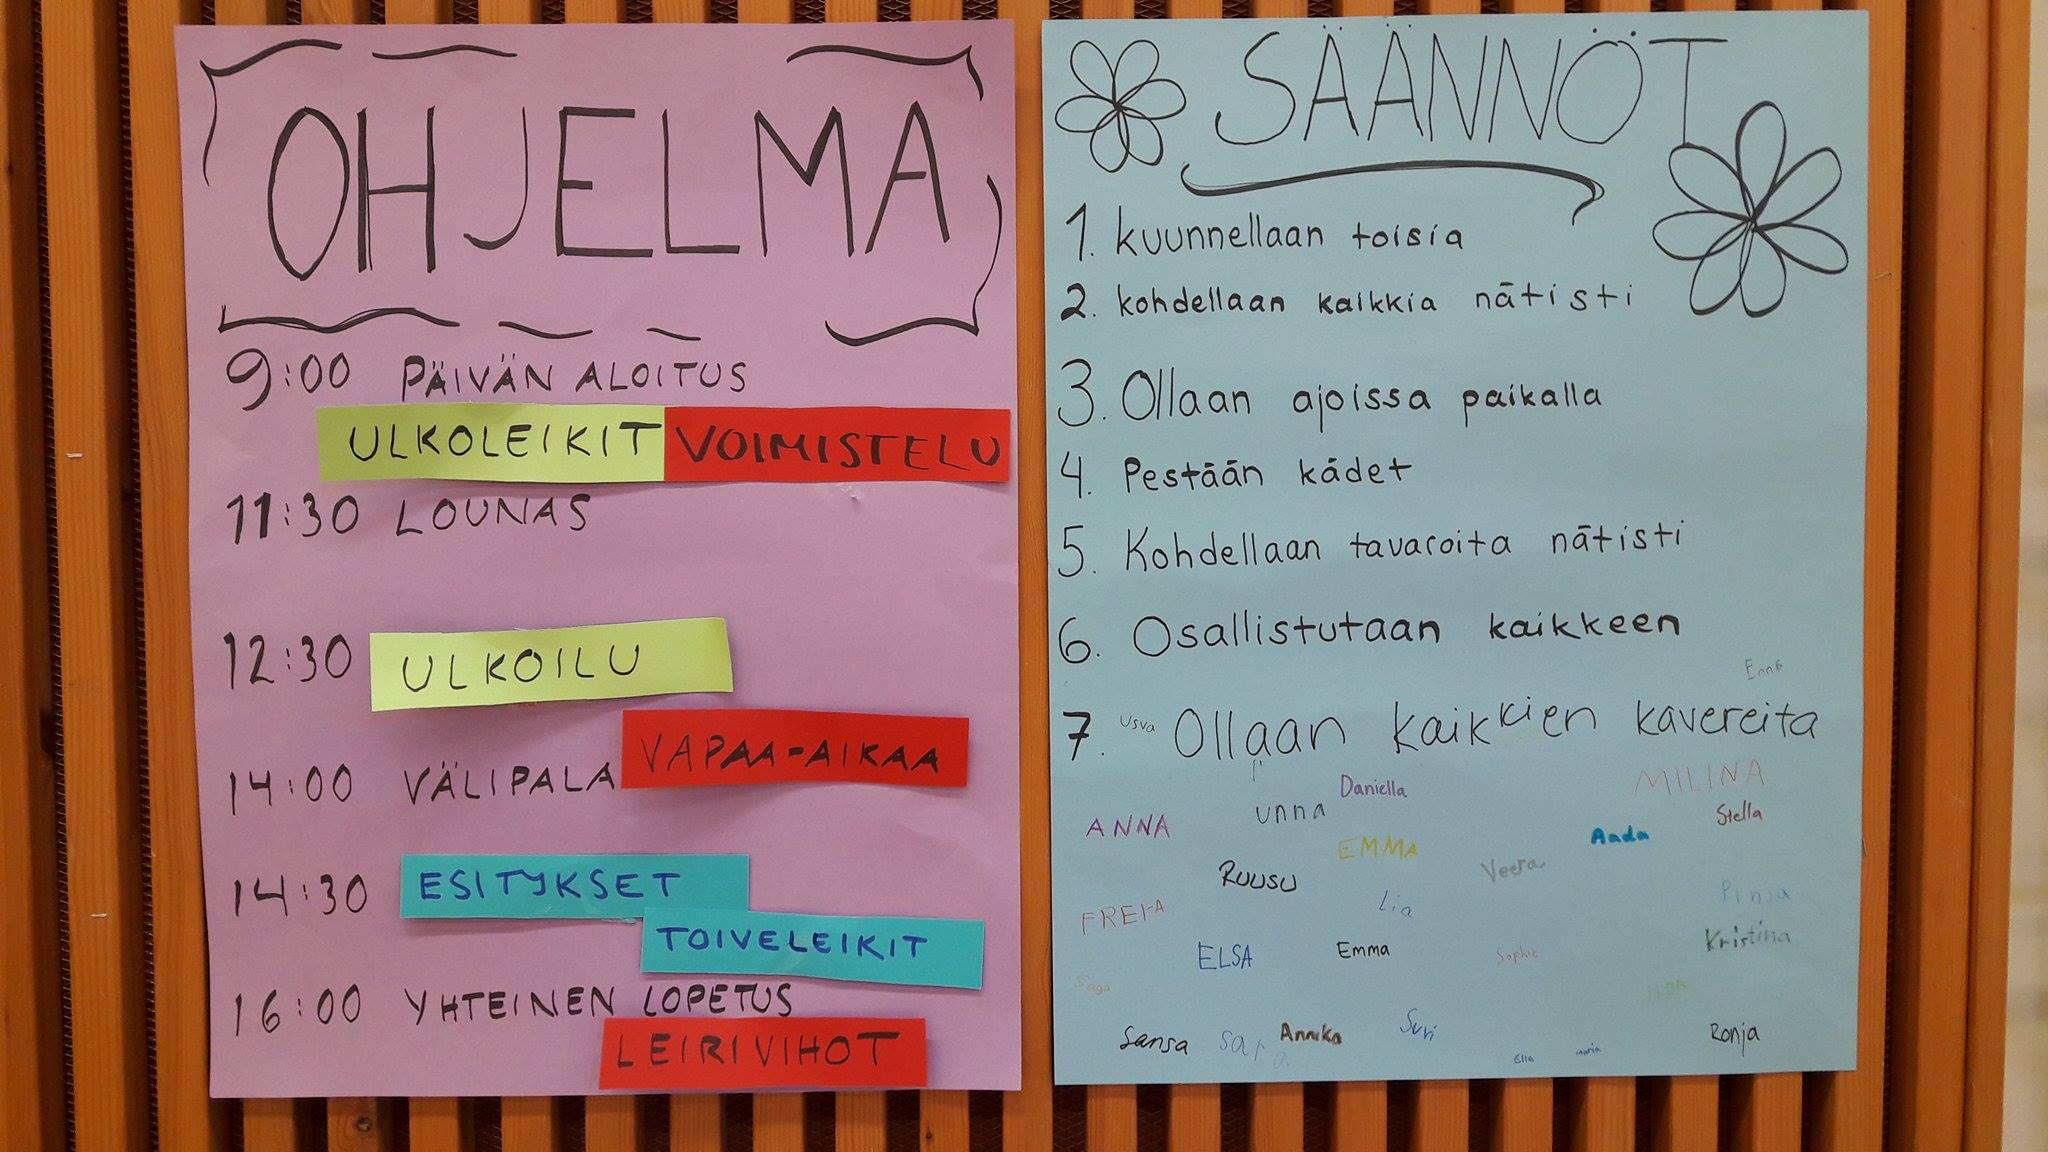 OHJELMA
9:00 PÄIVÄN ALOITUS
ULKOLEIKIT VOIMISTELU
11:30 LOUNAS
12:30 ULKOILU
VAPAA-AIKAA
14:00 VÄLIPALA
14:30 ESITYKSET
TOIVELEIKIT
16:00 YHTEINEN LOPETUS
LEIRIVIHOT
SÄÄNNÖT
1. kuunnellaan toisia
2. kohdellaan kaikkia nätisti
3. Ollaan ajoissa paikalla
4. Pestään kädet
5. Kohdellaan tavaroita nätisti
6. Osallistutaan kaikkeen
Enna
7. Usva Ollaan kaikkien kavereita
Daniella MILINA
ANNA unna Stella
EMMA Aada
Ruusu Veera
FREIA Lia Pinja
ELSA Emma Sophie Kristina
Saga
Sansa Annika Suvi Ronja
Ella maria